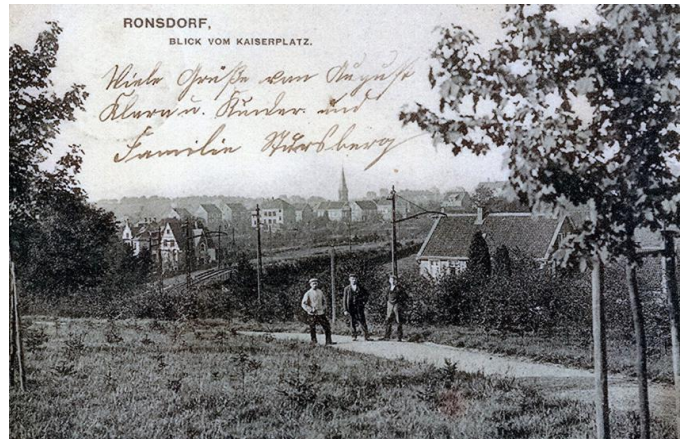 RONSDORF,
BLICK VOM KAISERPLATZ.
Viele Grüße von August
Klara u. Kinder und
Familie Stursberg